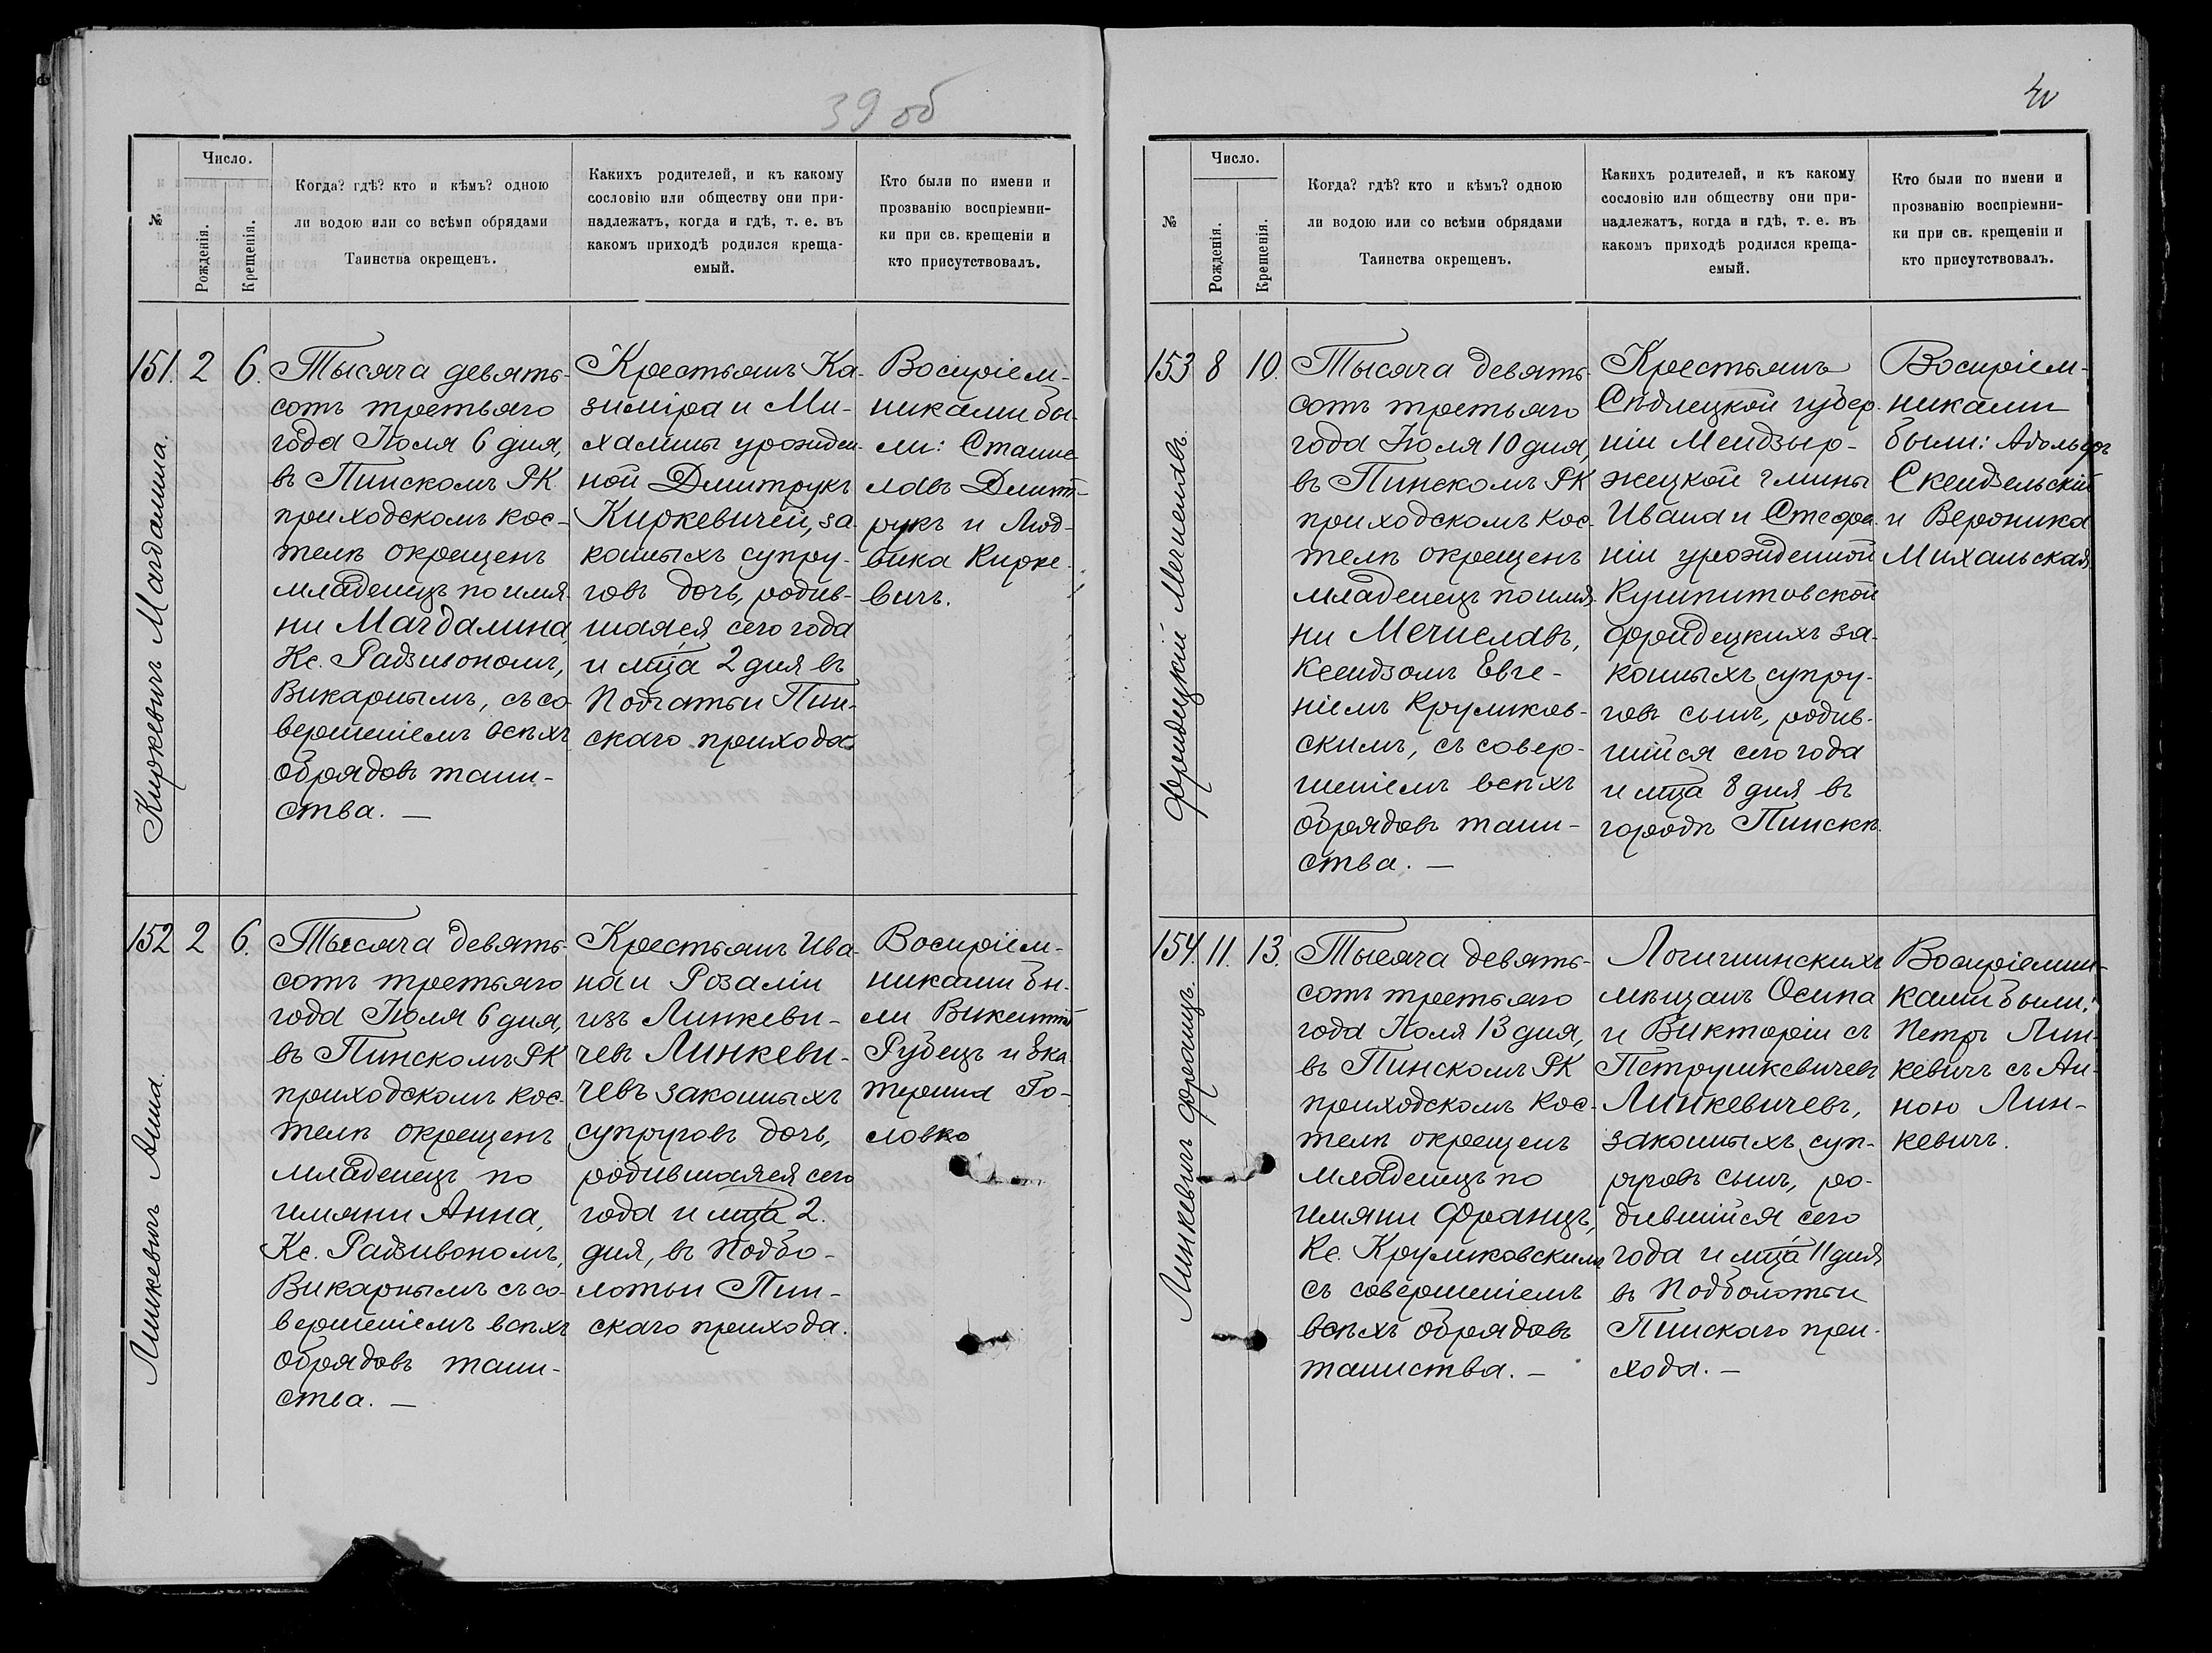 39 об
№
Число.
Рожденія.
Крещенія.
Когда? гдѣ? кто и кѣмъ? одною
ли водою или со всѣми обрядами
Таинства окрещенъ.
Какихъ родителей, и къ какому
сословію или обществу они при-
надлежатъ, когда и гдѣ, т. е. въ
какомъ приходѣ родился креща-
емый.
Кто были по имени и
прозванію воспріемни-
ки при св. крещеніи и
кто присутствовалъ.
151. 2 6.
Киркевичъ Магдалина.
Тысяча девять-
сотъ третьяго
года Іюля 6 дня,
въ Пинскомъ РК
приходскомъ кос-
телѣ окрещенъ
младенецъ по имя-
ни Магдалина
Кс. Радзивономъ,
Викарнымъ, съ со-
вершеніемъ всѣхъ
обрядовъ таин-
ства. —
Крестьянъ Ка-
зиміра и Ми-
халины урожден-
ной Дмитрукъ
Киркевичей, за-
конныхъ супру-
говъ дочь, родив-
шаяся сего года
и мца 2 дня въ
Подгатьи Пин-
скаго прихода.
Воспріем-
никами бы-
ли: Станис-
лавъ Дмит-
рукъ и Люд-
вика Кирке-
вичъ.
152 2 6.
Линкевичъ Анна.
Тысяча девять-
сотъ третьяго
года Іюля 6 дня,
въ Пинскомъ РК
приходскомъ кос-
телѣ окрещенъ
младенецъ по
имяни Анна,
Кс. Радзивономъ,
Викарнымъ съ со-
вершеніемъ всѣхъ
обрядовъ таин-
ства. —
Крестьянъ Ива-
на и Розаліи
изъ Линкеви-
чевъ Линкеви-
чевъ законныхъ
супруговъ дочь,
родившаяся сего
года и мца 2.
дня, въ Подбо-
лотьи Пин-
скаго прихода.
Воспріем-
никами бы-
ли Викентій
Рубецъ и Ека-
терина Го-
ловко
40
№
Число.
Рожденія.
Крещенія.
Когда? гдѣ? кто и кѣмъ? одною
ли водою или со всѣми обрядами
Таинства окрещенъ.
Какихъ родителей, и къ какому
сословію или обществу они при-
надлежатъ, когда и гдѣ, т. е. въ
какомъ приходѣ родился креща-
емый.
Кто были по имени и
прозванію воспріемни-
ки при св. крещеніи и
кто присутствовалъ.
153 8 10.
Фрейдецкій Мечиславъ.
Тысяча девять-
сотъ третьяго
года Іюля 10 дня,
въ Пинскомъ РК
приходскомъ кос-
телѣ окрещенъ
младенецъ по имя-
ни Мечиславъ,
Ксендзомъ Евге-
ніемъ Круликов-
скимъ, съ совер-
шеніемъ всѣхъ
обрядовъ таин-
ства. —
Крестьянъ
Сѣдлецкой губер-
ніи Мендзыр-
жецкой гмины
Ивана и Стефа-
ніи урожденной
Фрейдецкихъ за-
конныхъ супру-
говъ сынъ, родив-
шійся сего года
и мца 8 дня въ
городѣ Пинскѣ.
Воспріем-
никами
были: Адольфъ
Скендзельскій
и Вероника
Михальская
154. 11. 13.
Линкевичъ Францъ.
Тысяча девять-
сотъ третьяго
года Іюля 13 дня,
въ Пинскомъ РК
приходскомъ кос-
телѣ окрещенъ
младенецъ по
имяни Францъ,
Кс. Круликовскимъ
съ совершеніемъ
всѣхъ обрядовъ
таинства. —
Логишинскихъ
мѣщанъ Осипа
и Викторіи съ
Петрушкевичевъ
Линкевичевъ,
законныхъ суп-
руговъ сынъ, ро-
дившійся сего
года и мца 11 дня
въ Подболотьи
Пинскаго при-
хода. —
Воспріемни-
ками были:
Петръ Лин-
кевичъ съ Ан-
ною Лин-
кевичъ.